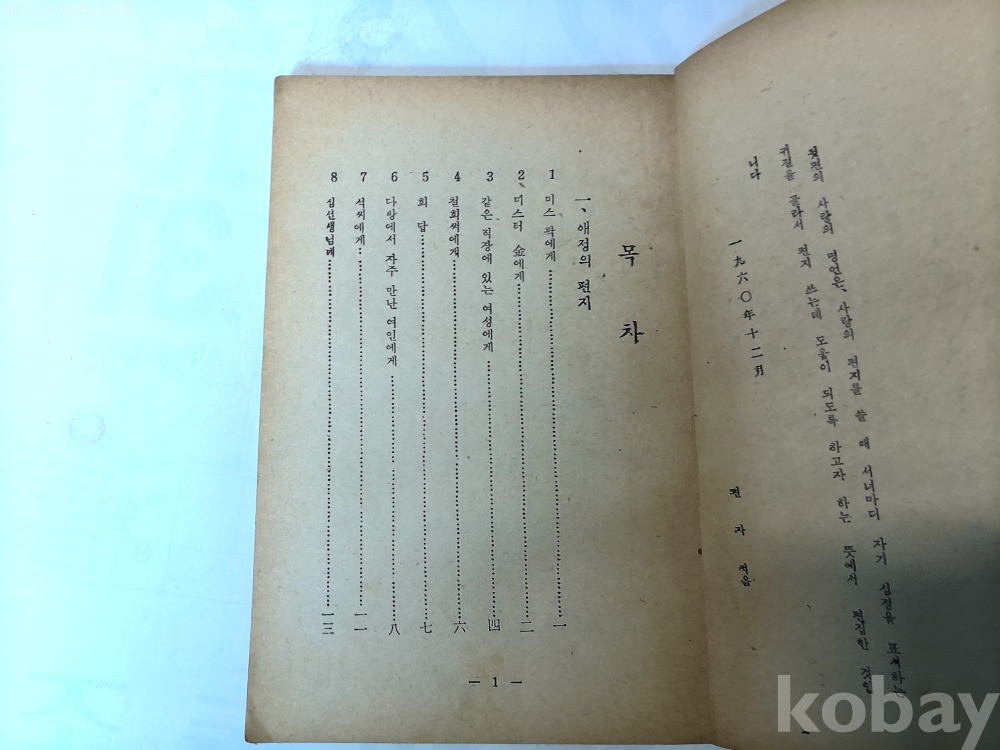 첫편의 사랑의 명언은, 사랑의 편지를 쓸 때 서너마디 자기 심정을 표시하는
귀절을 골라서 편지 쓰는데 도움이 되도록 하고자 하는 뜻에서 편집한 것입
니다
一九六〇年十二月
편자 적음
목차
一、애정의 편지
1 미스 곽에게 一
2 미스터 金에게 二
3 같은 직장에 있는 여성에게 四
4 철희씨에게 六
5 회답 七
6 다방에서 자주 만난 여인에게 八
7 석씨에게 一一
8 심선생님께 一三
— 1 —
kobay